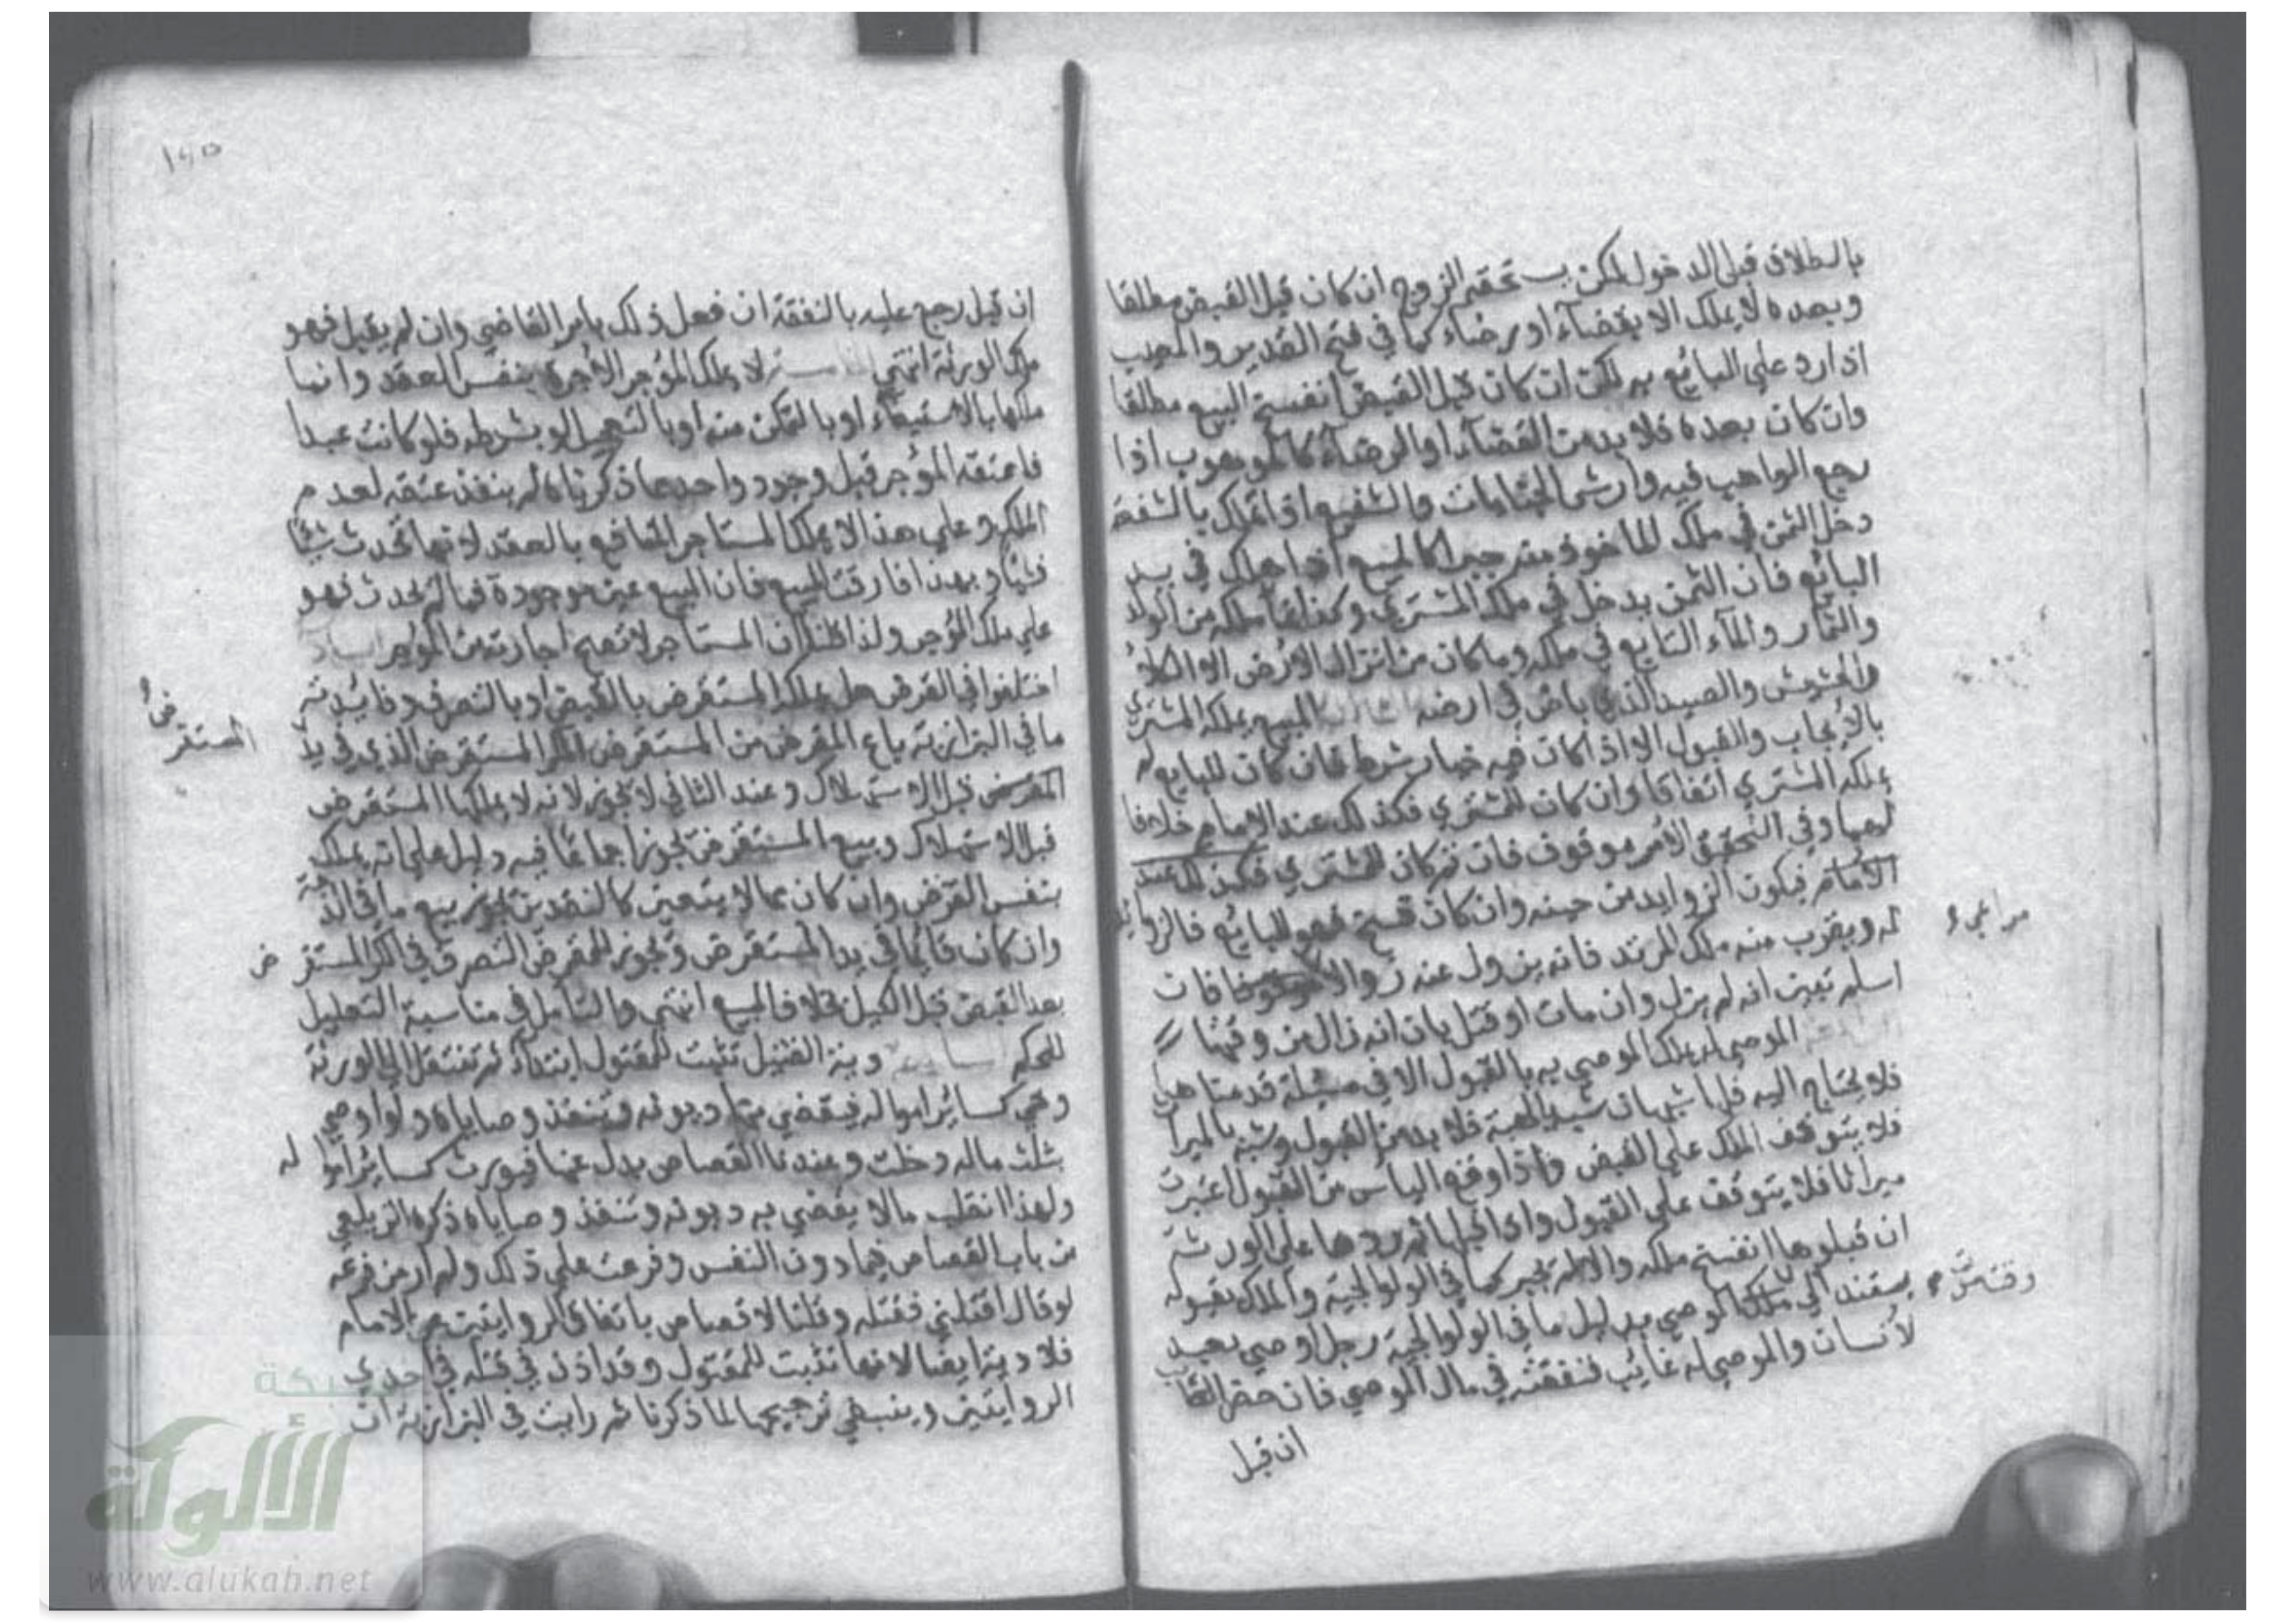 بالطلاق قبل الدخول لكن يستحقه الزوج ان كان قبل القبض مطلقا
وبعده لا يملك الا بقضآء او رضاء كما في فتح القدير والمعيب
اذا رد على البائع به لكن ان كان قبل القبض انفسخ البيع مطلقا
وان كان بعده فلا بد من القضآء او الرضآء كالموهوب اذا
رجع الواهب فيه وارش الجنايات والشفيع اذا تملك بالشفعة
دخل الثمن في ملك الماخوذ منه جبرا كالمبيع اذا هلك في يد
البائع فان الثمن يدخل في ملك المشتري وكذا نمآ ملكه من الولد
والثمار والمآء النابع في ملكه وما كان من انزال الارض الا الكلأ
والحشيش والصيد الذي باض في ارضه المبيع يملكه المشتري
بالايجاب والقبول الا اذا كان فيه خيار شرط فان كان للبايع لم
يملكه المشتري اتفاقا وان كان للمشتري فكذلك عند الامام خلافا
لهما وفي التحقيق الامر موقوف فان تم كان للمشتري فكذلك عند
الامام فيكون الزوايد من حينه وان كان فسخ فهو للبائع فالزوائد
له ويقرب منه ملك المرتد فانه يزول عنه زوالا فان
مراعى
اسلم تبين انه لم يزل وان مات او قتل بان انه زال من وقتها
الموصى له يملك الموصى به بالقبول الا في مسئلة قدمناها
فلا يحتاج اليه فلها شبهان شبه بالهبة فلا بد من القبول وشبه بالميرا
فلا يتوقف الملك على القبض واذا وقع الياس من القبول اعتبرت
ميراثا فلا يتوقف على القبول واذا قبلها ثم ردها على الورثة
ان قبلوها انفسخ ملكه والا لم يجبر كما في الولوالجية والملك بقبوله
يستند الي ملك الموصي بدليل ما في الولوالجية رجل اوصى بعبد
لانسان والموصى له غائب فنفقته في مال الموصي فان حضر الغائب
ان قبل
ان قبل رجع عليه بالنفقة ان فعل ذلك بامر القاضي وان لم يقبل فهو
ملك الورثة انتهى لا يملك المؤجر الاجرة بنفس العقد وانما
ملكها بالاستيفاء او بالتمكن منه او بالتعجيل او بشرطه فلو كانت عبدا
فاعتقه المؤجر قبل وجود واحد مما ذكرناه لم ينفذ عتقه لعدم
الملك وعلى هذا لا يملك المستاجر المنافع بالعقد لانها تحدث شيئا
فشيئا وبهذا فارقت المبيع فان المبيع عين موجودة فما لم تحدث فهو
على ملك المؤجر ولذا قلنا ان المستاجر لا تصح اجارته من المؤجر
اختلفوا في القرض هل يملكه المستقرض بالقبض او بالتصرف وفائدته
ما في البزازية باع المقرض من المستقرض الكر المستقرض الذي في يد
المستقرض
المقرض قبل الاستهلاك وعند الثاني لا تجوز لانه لا يملكها المستقرض
قبل الاستهلاك وبيع المستقرض تجوز اجماعا فيه دليل على انه يملك
بنفس القرض وان كان مما لا يتعين كالنقدين تجوز بيع ما في الذمة
وان كان قايما في يد المستقرض وتجوز للمقرض التصرف في الكر المستقرض
بعد القبض قبل الكيل بخلاف المبيع انتهى والتامل في مناسبة التعليل
للحكم دية القتيل تثبت للمقتول ابتداء ثم تنتقل الي الورثة
وهي كسائر امواله فيقضي منها ديونه وتنفذ وصاياه ولو اوصى
بثلث ماله دخلت وعندنا القصاص بدل عنها فيورث كسائر امواله
ولهذا انقلب مالا يقضي به ديونه وتنفذ وصاياه ذكره الزيلعي
من باب القصاص فيما دون النفس وفرعت على ذلك ولم ار من فرعه
لو قال اقتلني فقتله وقلنا لا قصاص باتفاق الروايتين عن الامام
فلا دية ايضا لانها تثبت للمقتول وقد اذن في قتله في احدى
الروايتين وينبغي ترجيحها لما ذكرنا ثم رايت في البزازية ان